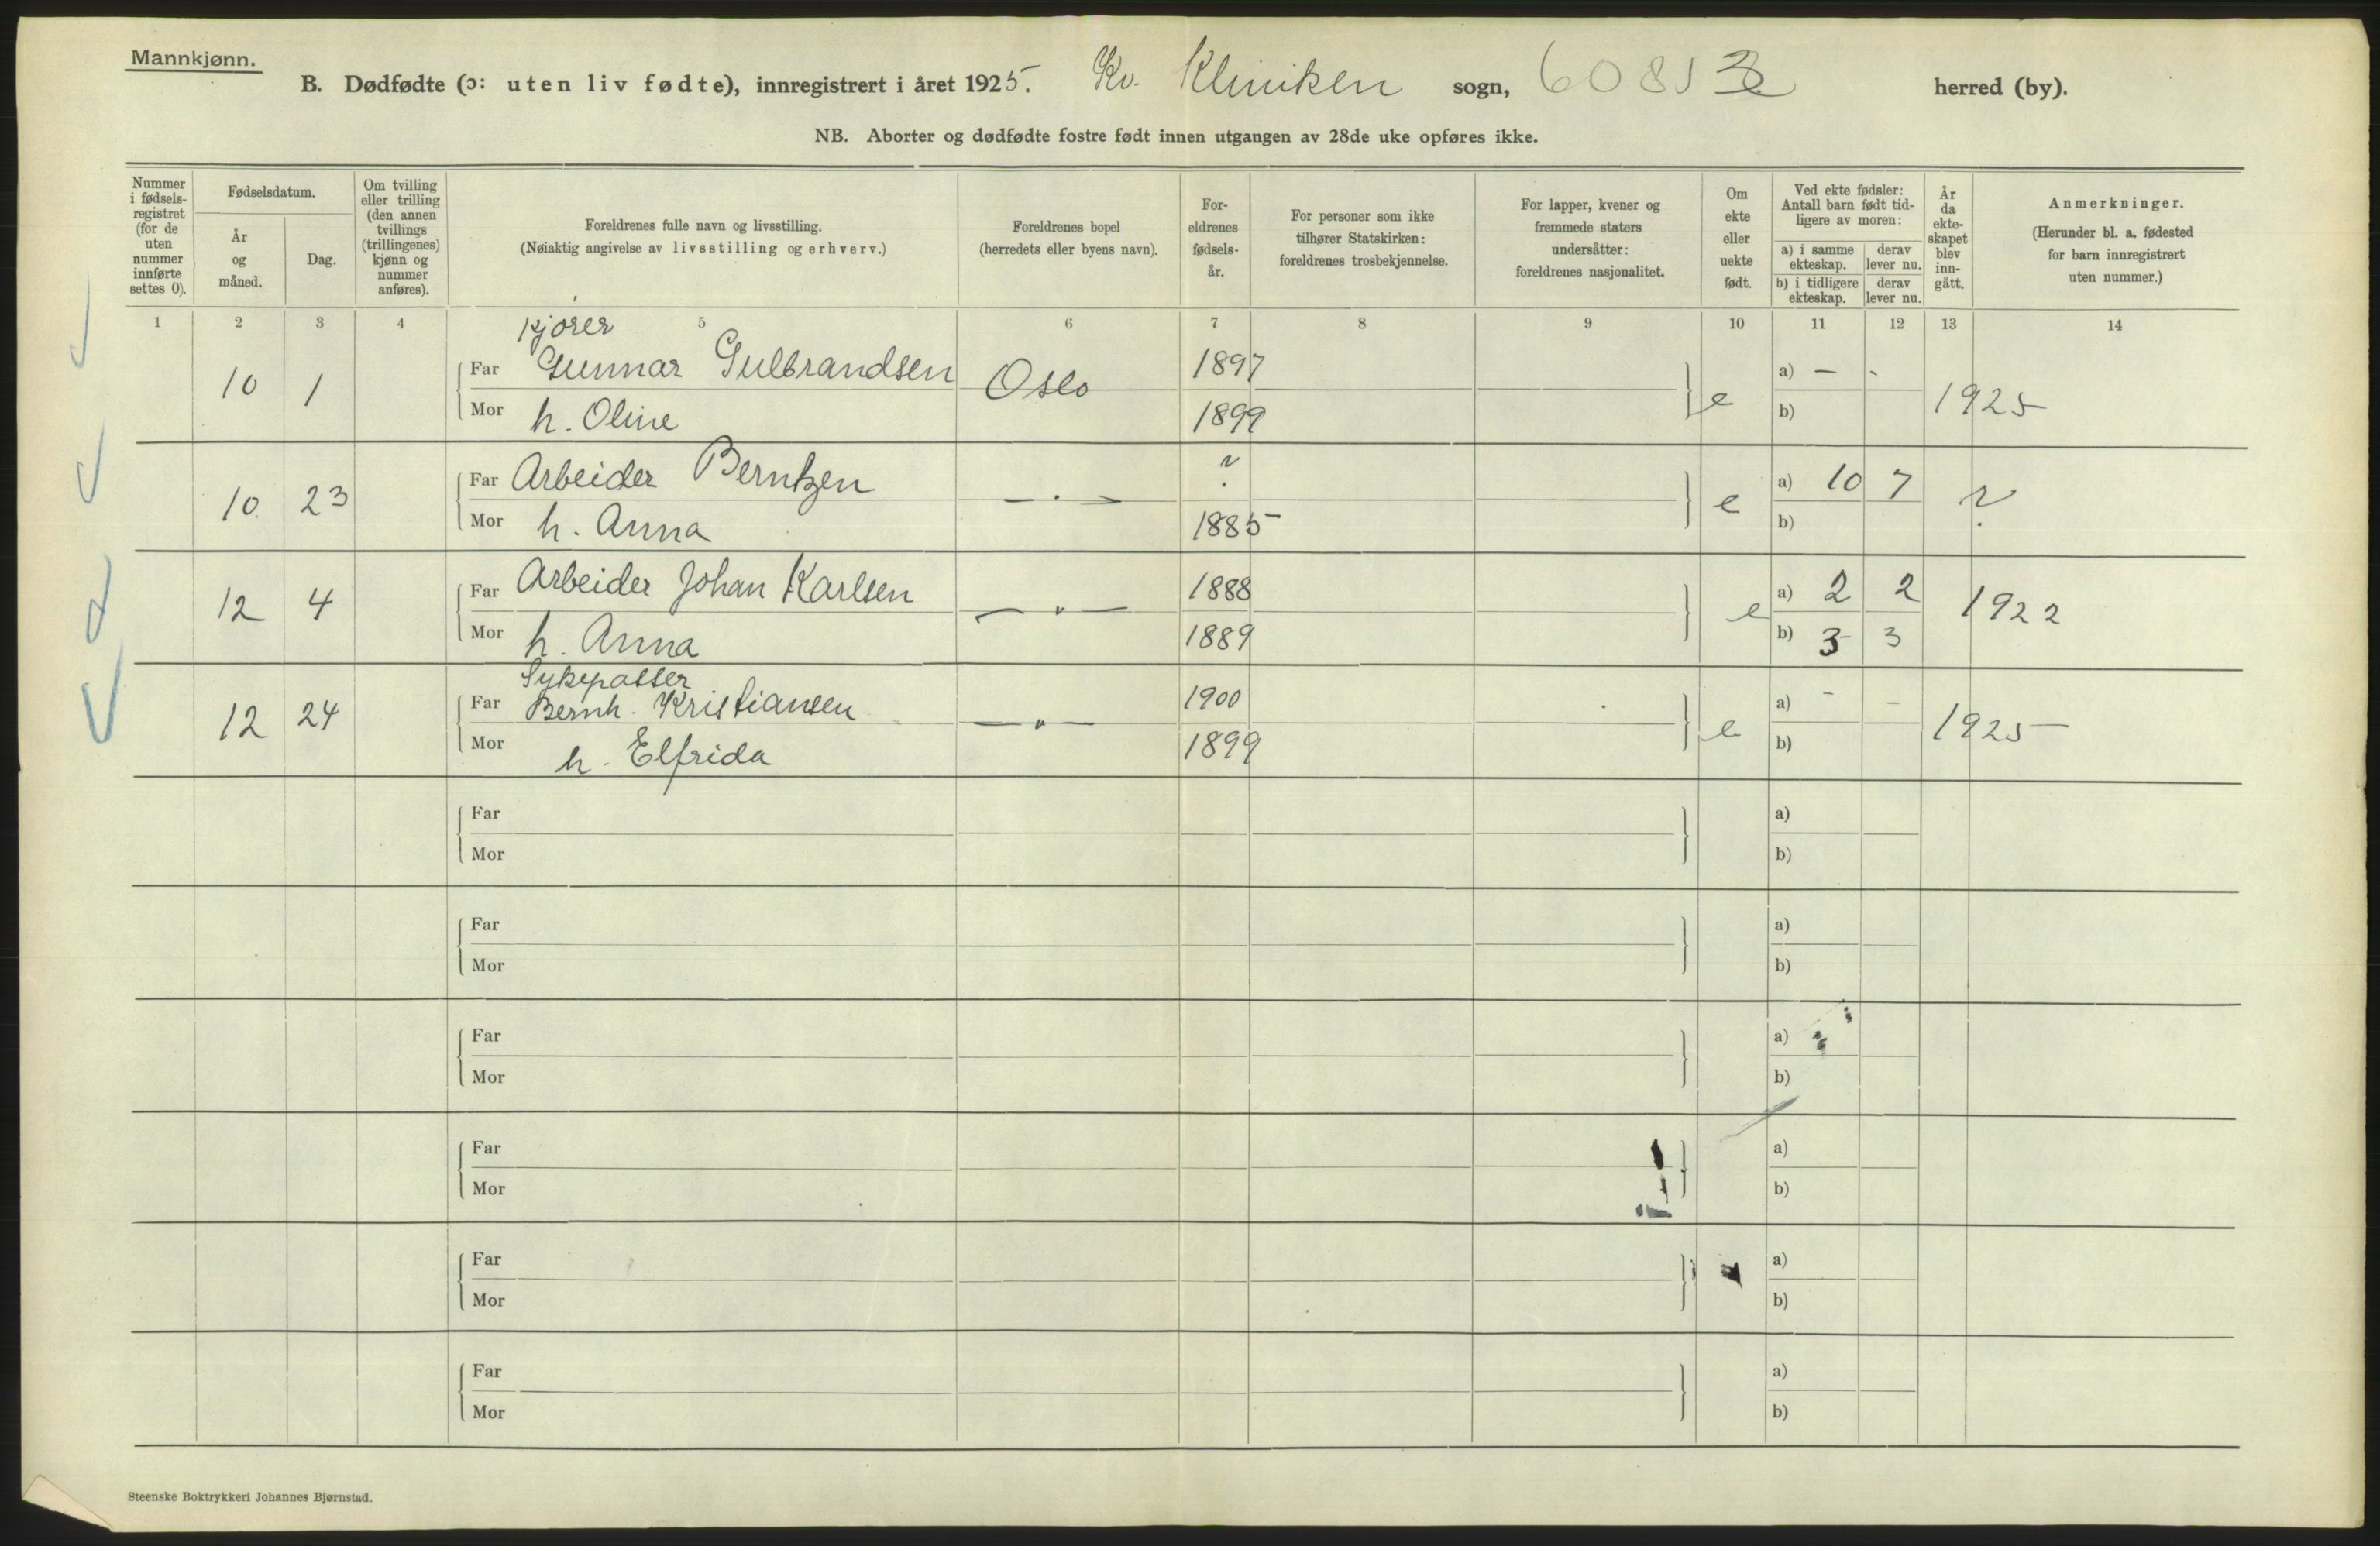 Mannkjønn.
B. Dødfødte (ɔ: uten liv fødte), innregistrert i året 1925. Kv. Kliniken sogn, herred (by).
NB. Aborter og dødfødte fostre født innen utgangen av 28de uke opføres ikke.
Nummer i fødsels-registret (for de uten nummer innførte settes 0).
Fødselsdatum.
År og måned.
Dag.
Om tvilling eller trilling (den annen tvillings (trillingenes) kjønn og nummer anføres).
Foreldrenes fulle navn og livsstilling.
(Nøiaktig angivelse av livsstilling og erhverv.)
Foreldrenes bopel
(herredets eller byens navn).
For-eldrenes fødsels-år.
For personer som ikke tilhører Statskirken: foreldrenes trosbekjennelse.
For lapper, kvener og fremmede staters undersåtter: foreldrenes nasjonalitet.
Om ekte eller uekte født.
Ved ekte fødsler: Antall barn født tid-ligere av moren:
a) i samme ekteskap. derav lever nu.
b) i tidligere ekteskap. derav lever nu.
År da ekte-skapet blev inn-gått.
Anmerkninger.
(Herunder bl. a. fødested for barn innregistrert uten nummer.)
1 2 3 4 5 6 7 8 9 10 11 12 13 14
Kjører
10 1 Far Gunnar Gulbrandsen Oslo 1897 e a) — - 1925
Mor h. Oline 1899 b)
10 23 Far Arbeider Berntzen — " — ? e a) 10 7 ?
Mor h. Anna 1885 b)
12 4 Far Arbeider Johan Karlsen — " — 1888 e a) 2 2 1922
Mor h. Anna 1889 b) 3 3
Sykepasser
12 24 Far Bernh. Kristiansen — " — 1900 e a) - - 1925
Mor h. Elfrida 1899 b)
Far a)
Mor b)
Far a)
Mor b)
Far a)
Mor b)
Far a)
Mor b)
Far a)
Mor b)
Far a)
Mor b)
Steenske Boktrykkeri Johannes Bjørnstad.